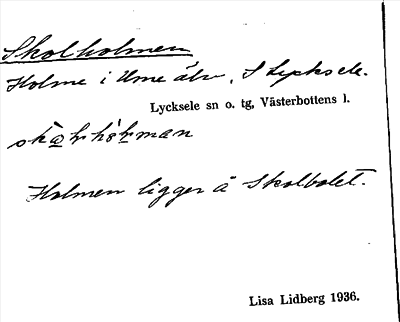 Skolholmen
Holme i Ume älv, I Lycksele.
Lycksele sn o. tg, Västerbottens l.
Holmen ligger å Skolbolet.
Lisa Lidberg 1936.